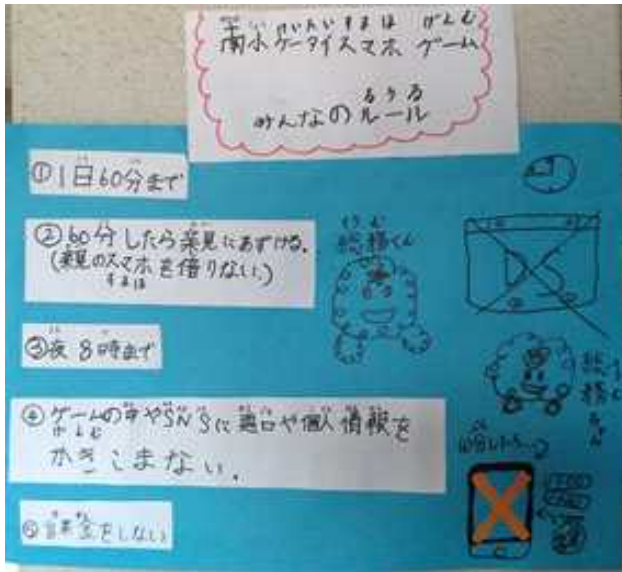 南小ケータイスマホ ゲーム
みんなのルール
①1日60分まで
②60分したら親にあずける。
(親のスマホを借りない。)
③夜 8時まで
④ゲームの中やSNSに悪口や個人情報を
かきこまない。
⑤課金をしない
DS